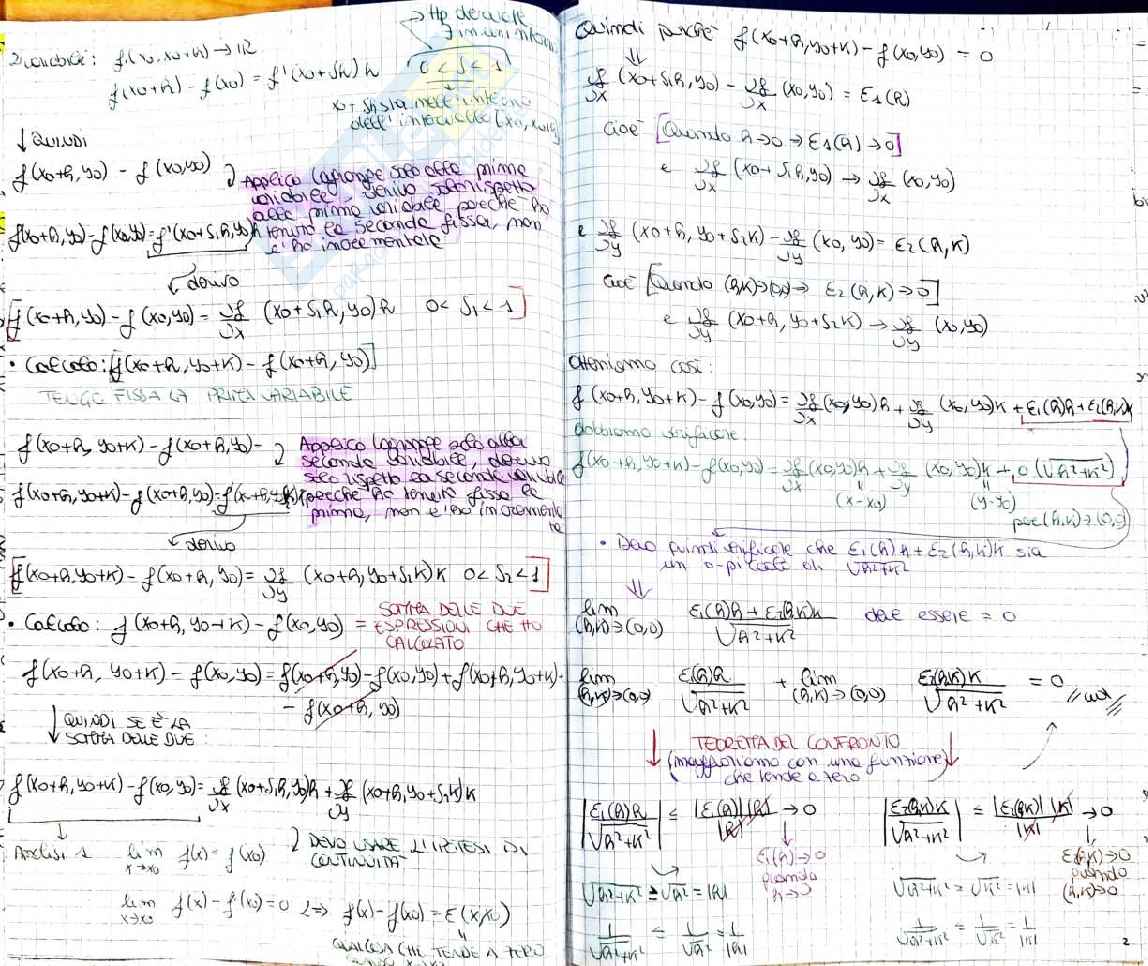 → Hp derivate
2 variabili: f: (x0, x0+h) → R
f(x0+h) - f(x0) = f'(x0+Sh) h 0 < S < 1
↓ QUINDI
f(x0+h, y0) - f(x0,y0)
Applico Lagrange solo alla prima
variabile, derivo
alla prima variabile perchè ho
f(x0+h, y0) - f(x0,y0) = f'(x0+S1h, y0)h tenuto la seconda fissa, non
l'ho incrementata
↙ derivo
[f(x0+h, y0) - f(x0,y0) = ∂f/∂x (x0+S1h, y0) h 0 < S1 < 1]
• Calcolo: [f(x0+h, y0+k) - f(x0+h, y0)]
TENGO FISSA LA PRIMA VARIABILE
f(x0+h, y0+k) - f(x0+h, y0) -
Applico Lagrange solo alla
seconda variabile, derivo
solo rispetto la seconda variabile
f(x0+h, y0+k) - f(x0+h, y0) = perchè ho tenuto fissa la
prima, non l'ho incrementata
↙ derivo
[f(x0+h, y0+k) - f(x0+h, y0) = ∂f/∂y (x0+h, y0+S2k) k 0 < S2 < 1]
• Calcolo: f(x0+h, y0+k) - f(x0,y0) = SOMMA DELLE DUE
ESPRESSIONI CHE HO
CALCOLATO
f(x0+h, y0+k) - f(x0,y0) = f(x0+h,y0) - f(x0,y0) + f(x0+h, y0+k) -
- f(x0+h, y0)
↓ QUINDI SE È LA
SOMMA DELLE DUE:
f(x0+h, y0+k) - f(x0,y0) = ∂f/∂x (x0+S1h, y0)h + ∂f/∂y (x0+h, y0+S2k)k
↓
Analisi 1 lim x→x0 f(x) = f(x0) DEVO USARE L'IPOTESI DI
CONTINUITÀ
lim x→x0 f(x) - f(x0) = 0 <=> f(x) - f(x0) = ε(x,x0)
QUALCOSA CHE TENDE A ZERO
Quindi perchè f(x0+h, y0+k) - f(x0,y0) = 0
⇓
∂f/∂x (x0+S1h, y0) - ∂f/∂x (x0,y0) = ε1(h)
cioè [Quando h→0 → ε1(h)→0]
e ∂f/∂x (x0+S1h, y0) → ∂f/∂x (x0,y0)
e ∂f/∂y (x0+h, y0+S2k) - ∂f/∂y (x0,y0) = ε2(h,k)
cioè [Quando (h,k)→(0,0) → ε2(h,k)→0]
e ∂f/∂y (x0+h, y0+S2k) → ∂f/∂y (x0,y0)
Otteniamo così:
f(x0+h, y0+k) - f(x0,y0) = ∂f/∂x (x0,y0)h + ∂f/∂y (x0,y0)k + ε1(h)h + ε2(h,k)k
Dobbiamo verificare
f(x0+h, y0+k) - f(x0,y0) = ∂f/∂x (x0,y0)h + ∂f/∂y (x0,y0)k + o(√h²+k²)
(x-x0) (y-y0)
per (h,k)→(0,0)
• Devo quindi verificare che ε1(h)h + ε2(h,k)k sia
un o-piccolo di √h²+k²
⇓
lim (h,k)→(0,0) ε1(h)h + ε2(h,k)k / √h²+k² deve essere = 0
lim (h,k)→(0,0) ε1(h)h / √h²+k² + lim (h,k)→(0,0) ε2(h,k)k / √h²+k² = 0
↓ TEOREMA DEL CONFRONTO ↓
(maggioriamo con una funzione)
che tende a zero
|ε1(h)h / √h²+k²| ≤ |ε1(h)| |h| / |h| → 0 |ε2(h,k)k / √h²+k²| ≤ |ε2(h,k)| |k| / |k| → 0
ε1(h)→0
quando
h→0
ε2(h,k)→0
quando
(h,k)→0
√h²+k² ≥ √h² = |h| √h²+k² ≥ √k² = |k|
1/√h²+k² ≤ 1/√h² = 1/|h| 1/√h²+k² ≤ 1/√k² = 1/|k|
2